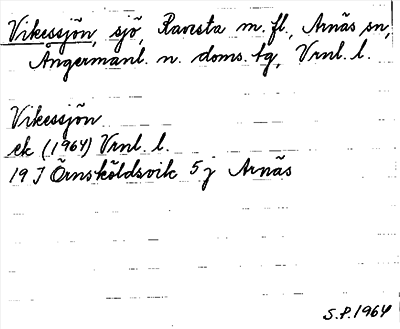 Vikessjön, sjö, Ravesta m.fl., Arnäs sn,
Ångermanl. n. doms. tg, Vrnl. l.
Vikessjön
ek (1964) Vrnl. l.
19 J Örnsköldsvik 5 j Arnäs
S.P. 1964